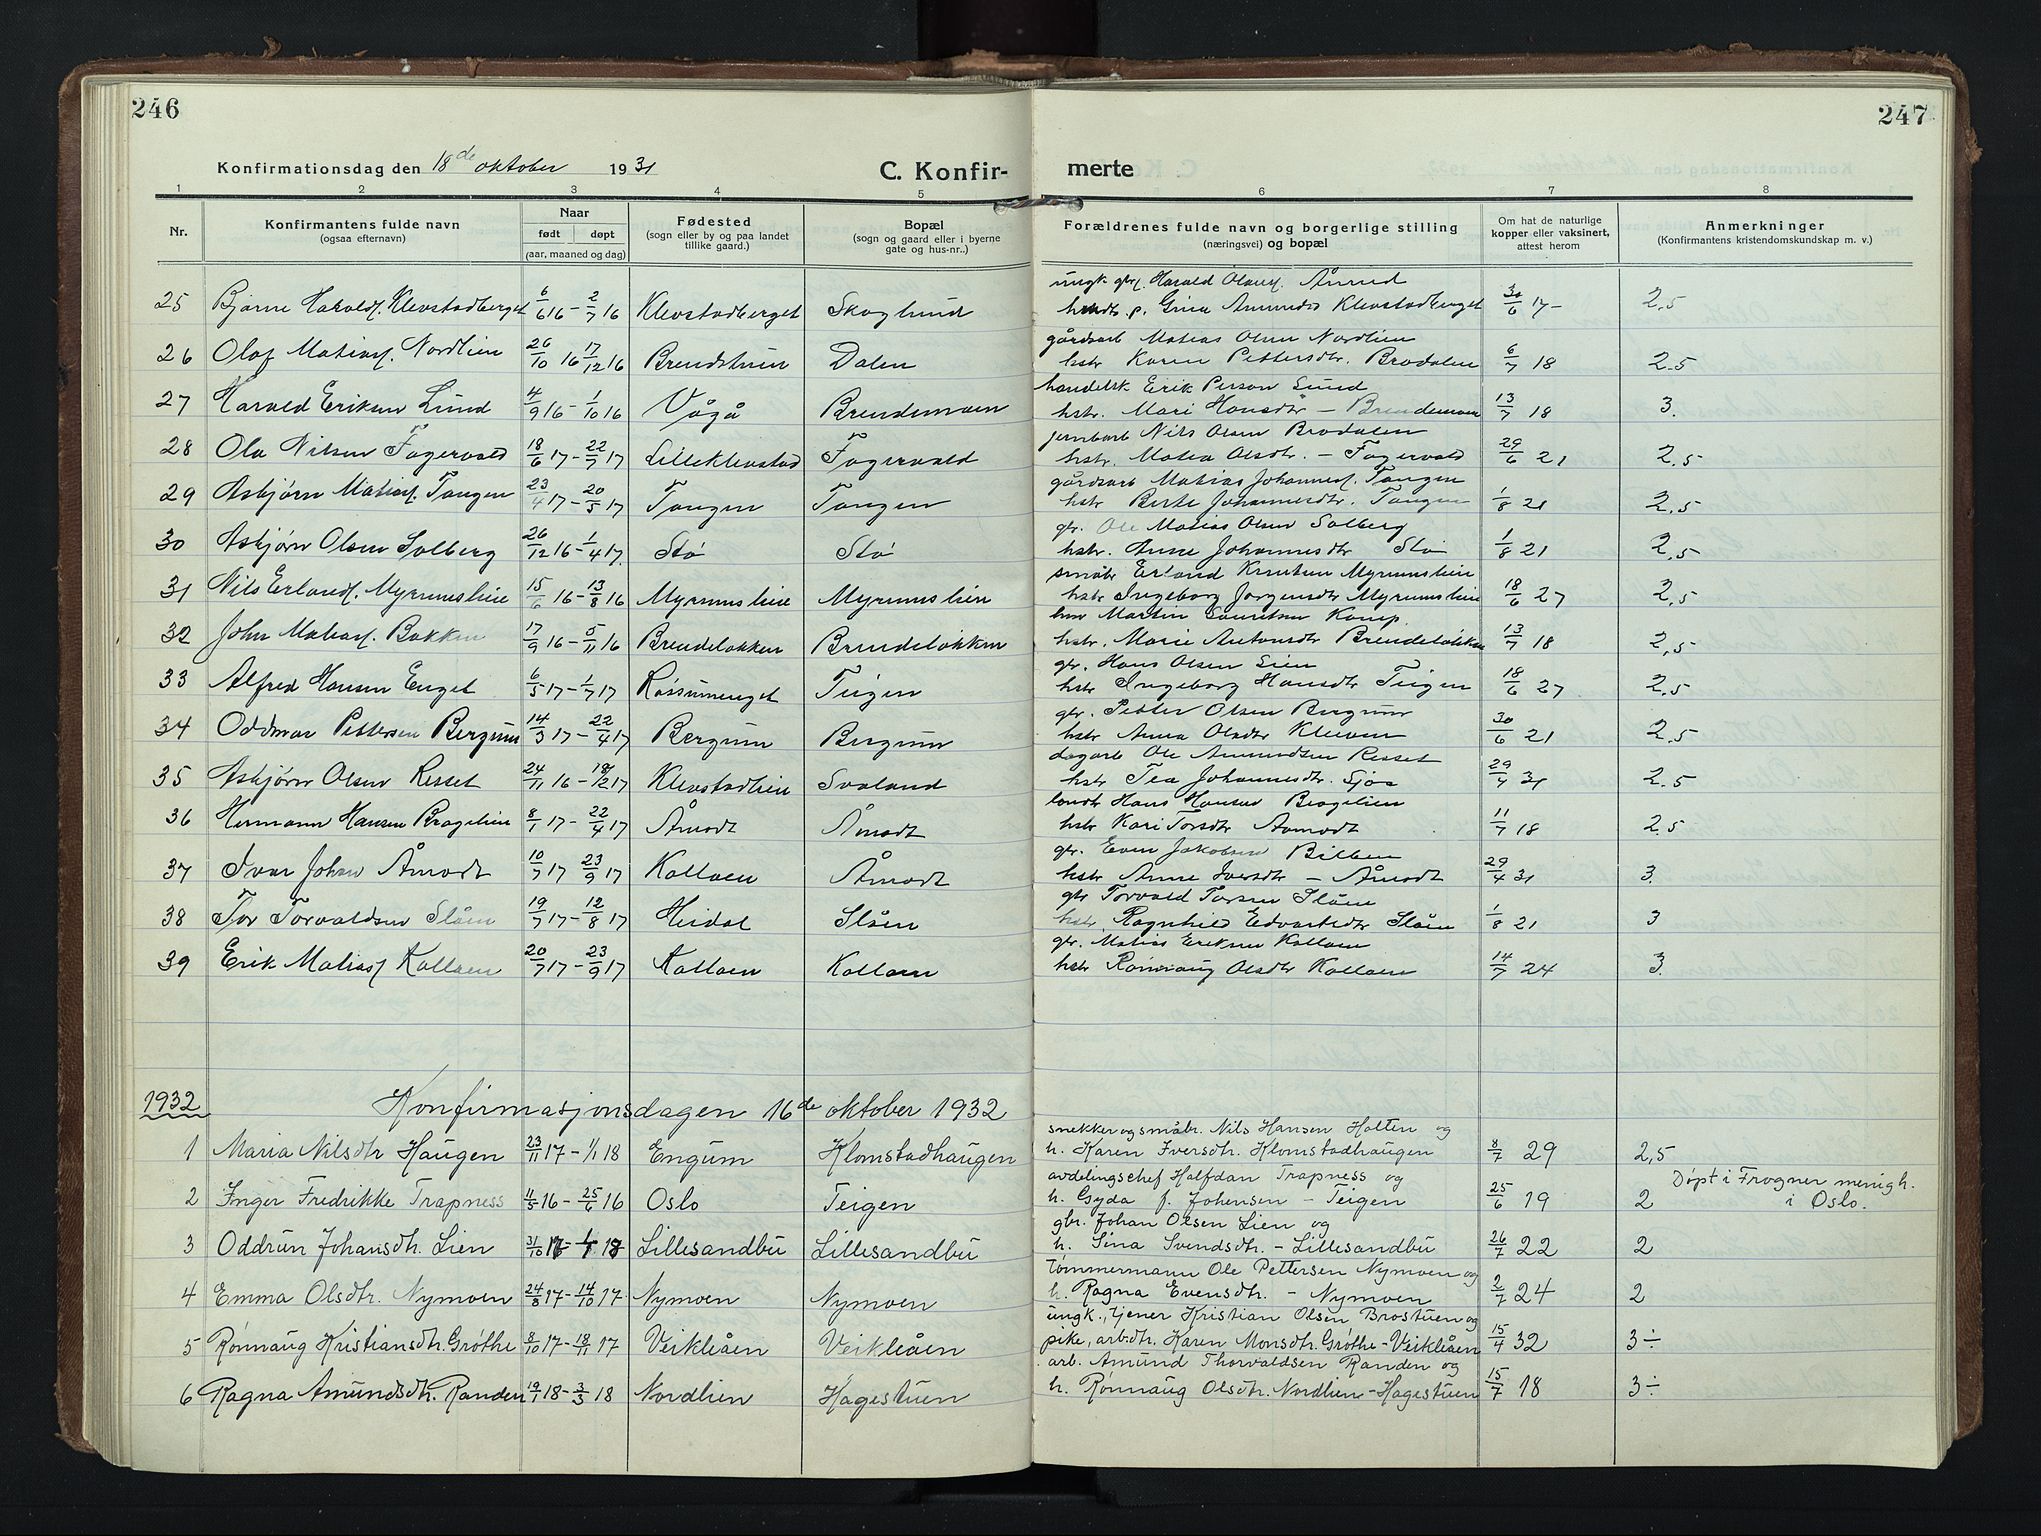 246
Konfirmationsdag den 18de oktober 1931
C. Konfir-
1 2 3 4 5
Nr.
Konfirmantens fulde navn (ogsaa efternavn)
Naar født døpt (aar, maaned og dag)
Fødested (sogn eller by og paa landet tillike gaard.)
Bopæl (sogn og gaard eller i byerne gate og hus-nr..)
25 Bjarne Haralds. Klevstadberget 6/6 16 - 2/7 16 Klevstadberget Skoglund
26 Olaf Matias. Nordlien 26/10 16 17/12 16 Brendstuen Dalen
27 Harald Eriksen Lund 4/9 16 - 1/10 16 Vågå Brendemoen
28 Ola Nilsen Fagervold 18/6 17 - 22/7 17 Lilleklevstad Fagervold
29 Asbjørn Matias. Tangen 23/4 17 - 20/5 17 Tangen Tangen
30 Asbjørn Olsen Solberg 26/12 16 - 1/4 17. Stø Stø
31 Nils Erlands. Myrumslien 15/6 16 - 13/8 16 Myrumslien Myrumslien
32 John Matias. Bakken 17/9 16 - 5/11 16 Brendeløkken Brendeløkken
33 Alfred Hansen Enget 6/5 17 - 1/7 17 Røssumenget Teigen
34 Oddmar Pettersen Bergum 14/3 17 - 22/4 17 Bergum Bergum
35 Asbjørn Olsen Resset 24/11 16 - 18/2 17 Klevstadlien Svaland
36 Hermann Hansen Bragelien 8/1 17 - 22/4 17 Åmodt Åmodt
37 Ivar Johan Åmodt 10/7 17 23/9 17 Kolloen Åmodt
38 Tor Torvaldsen Slåen 19/7 17 - 12/8 17 Heidal Slåen
39 Erik Matias. Kolloen 20/7 17 - 23/9 17 Kolloen Kolloen
1932 Konfirmasjonsdagen 16de oktober 1932
1 Maria Nilsdtr Haugen 23/11 17 - 1/1 18 Engum Klomstadhaugen
2 Inger Fredrikke Trapness 4/5 16 - 25/6 16 Oslo Teigen
3 Oddrun Johansdtr. Lien 31/10 Lillesandbu Lillesandbu
4 Emma Olsdtr. Nymoen 24/8 17 - 14/10 17 Nymoen Nymoen
5 Rønnaug Kristiansdtr. Grøthe 8/10 17 - 18/11 17 Veikleåen Veikleåen
6 Ragna Amundsdtr. Randen 19/1 18 - 3/3 18 Nordlien Hagestuen
247
merte
6 7 8
Forældrenes fulde navn og borgerlige stilling (næringsvei) og bopæl
Om hat de naturlige kopper eller vaksinert, attest herom
Anmerkninger (Konfirmantens kristendomskundskap m. v.)
ungk. Harald Olsen. Åmud
p. Gina Amundsdtr Klevstadberget 30/6 17 - 2,5
gårdsarb Matias Olsen Nordlien
hstr Karen Pettersdtr. Brodalen 6/7 18 2.5
handelsk Erik Person Lund
hstr. Mari Hansdtr - Brendemoen 13/7 18 3.
jernbarb Nils Olsen Brodalen
hstr. Matea Olsdtr. - Fagervold 29/6 21 2,5
gårdsarb Matias Johannes. Tangen
hstr Berte Johannesdtr. Tangen 1/8 21 2,5
gbr. Ole Matias Olsen Solberg
hstr. Anne Johannesdtr Stø 1/8 21 2,5
småbr Erland Knutsen Myrumslien
hstr Ingeborg Jørgensdtr Myrumslien 18/6 27 2,5
Martin Lauritsen Kamp.
hstr. Marie Antonsdtr Brendeløkken 13/7 18 2,5
gbr. Hans Olsen Lien
hstr Ingeborg Hansdtr Teigen 18/6 27 2,5
gbr. Petter Olsen Bergum
hstr Anna Olsdtr Kleiven 30/6 21 2,5
dagarb Ole Amundsen Resset
hstr Tea Johannesdtr. Sjoa 29/4 31 2.5
landh Hans Hansen Bragelien
hstr Kari Torsdtr Aamodt 11/7 18 2.5
gbr. Even Jakobsen Bilben
hstr Anne Iversdtr - Åmodt 29/4 31 3.
gbr Torvald Torsen Slåen
hstr. Ragnhild Edvartsdtr Slåen 1/8 21 3
gbr. Matias Eriksen Kolloen
hstr Rønnaug Olsdtr Kolloen 14/7 24 3.
snekker og småbr. Nils Hansen Holten og
h. Karen Iversdtr. Klomstadhaugen 8/7 29 2,5
avdelingschef Halfdan Trapness og
h. Gyda f. Johansen - Teigen 25/6 19 2 Døpt i Frogner menigh. i Oslo.
gbr. Johan Olsen Lien og
h. Sina Svendsdtr. - Lillesandbu 26/7 22 2
Tømmermann Ole Pettersen Nymoen og
h. Ragna Evensdtr. - Nymoen 2/7 24 2
ungk., tjener Kristian Olsen Brostuen og
pike, arb.dtr. Karen Monsdtr. Grøthe - Veikleåen 15/4 32 3÷
arb. Amund Thorvaldsen Randen og
h. Rønnaug Olsdtr. Nordlien - Hagestuen 15/7 18 3÷